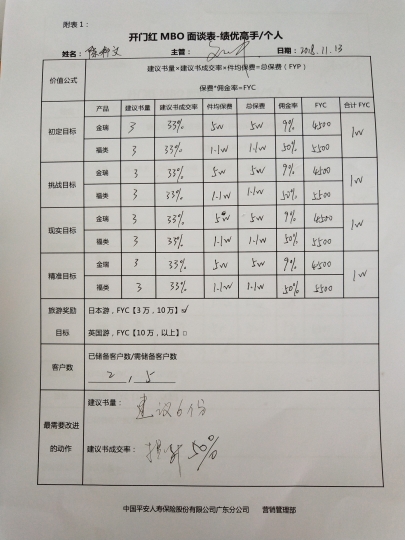 附表1：
开门红 MBO 面谈表-绩优高手/个人
姓名： 主管： 日期：2018.11.13
价值公式 建议书量×建议书成交率×件均保费=总保费（FYP）
保费*佣金率=FYC
产品 建议书量 建议书成交率 件均保费 总保费 佣金率 FYC 合计 FYC
初定目标 金瑞 3 33% 5w 5w 9% 4500 1w
福类 3 33% 1.1w 1.1w 50% 5500
挑战目标 金瑞 3 33% 5w 5w 9% 4500 1w
福类 3 33% 1.1w 1.1w 50% 5500
现实目标 金瑞 3 33% 5w 5w 9% 4500 1w
福类 3 33% 1.1w 1.1w 50% 5500
精准目标 金瑞 3 33% 5w 5w 9% 4500 1w
福类 3 33% 1.1w 1.1w 50% 5500
旅游奖励 日本游，FYC【3 万，10 万】☑
目标 英国游，FYC【10 万，以上】□
客户数 已储备客户数/需储备客户数
2，5
最需要改进的动作 建议书量： 建议6份
建议书成交率： 提升50%
中国平安人寿保险股份有限公司广东分公司 营销管理部